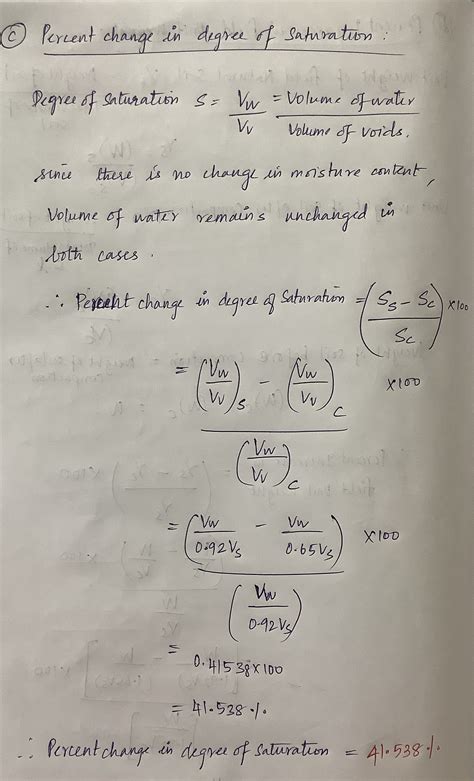 (C) Percent change in degree of saturation :
Degree of saturation S = Vw/Vv = Volume of water / Volume of voids.
since there is no change in moisture content,
Volume of water remains unchanged in
both cases.
∴ Percent change in degree of saturation = ((Ss - Sc) / Sc) ×100
= ((Vw/Vv)s - (Vw/Vv)c) / (Vw/Vv)c ×100
= (Vw/0.92Vs - Vw/0.65Vs) / (Vw/0.92Vs) ×100
= 0.41538×100
= 41.538 %.
∴ Percent change in degree of saturation = 41.538 %.